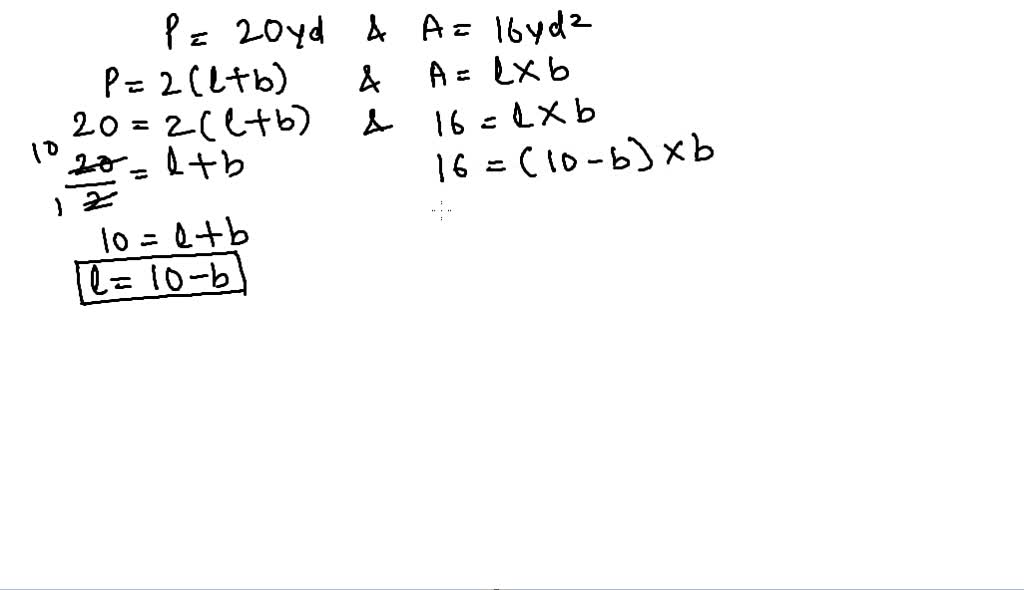 P = 20yd & A = 16yd²
P = 2(l+b) & A = l×b
20 = 2(l+b) & 16 = l×b
10
20/2 = l+b 16 = (10-b)×b
1
10 = l+b
l = 10-b